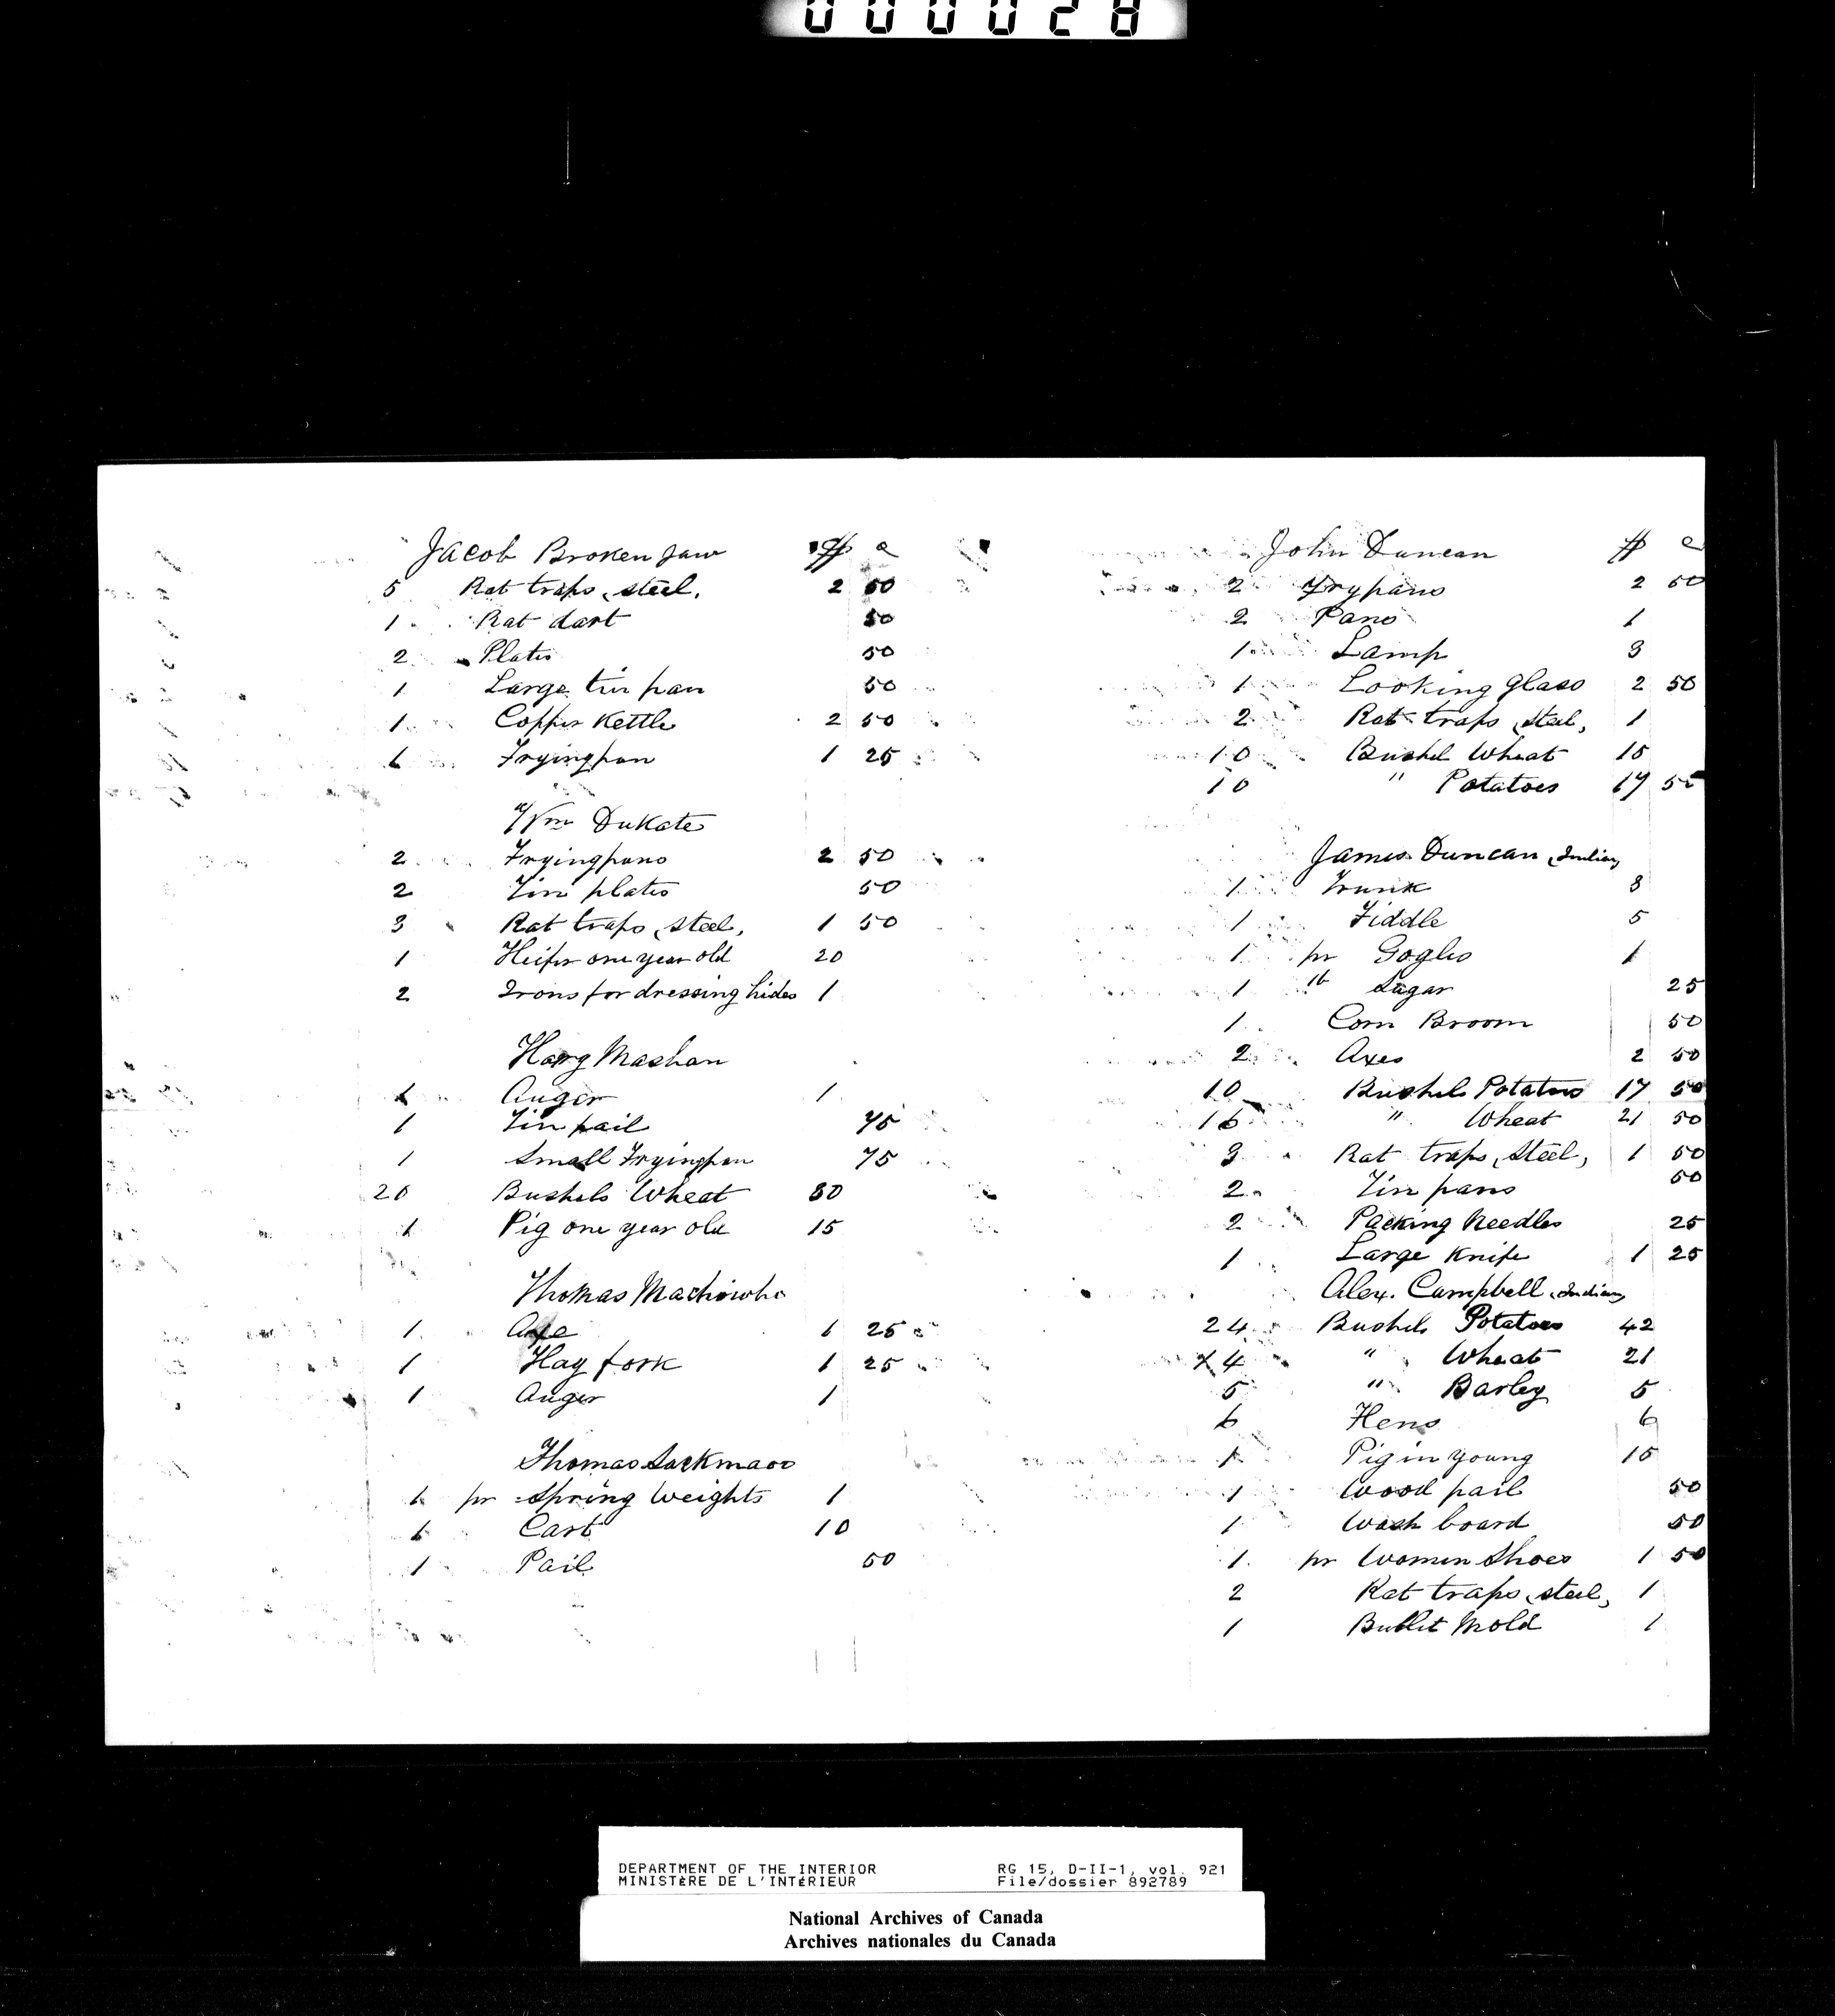 000028
Jacob Broken Jaw $ c
5 Rat traps, steel, 2 50
1 Rat dart 50
2 Plates 50
1 Large tin pan 50
1 Copper Kettle 2 50
1 Fryingpan 1 25
Wm Dukate
2 Fryingpans 2 50
2 Tin plates 50
3 Rat traps, steel, 1 50
1 Heifer one year old 20
2 Irons for dressing hides 1
Harry Mashan
1 Auger 1
1 Tin pail 75
1 Small Fryingpan 75
20 Bushels Wheat 30
1 Pig one year old 15
Thomas
1 Axe 1 25
1 Hay fork 1 25
1 Auger 1
Thomas
1 pr Spring Weights 1
1 Cart 10
1 Pail 50
John Duncan $ c
2 Frypans 2 50
2 Pans 1
1 Lamp 3
1 Looking glass 2 50
2 Rat traps, steel, 1
10 Bushel Wheat 15
10 " Potatoes 17 50
James Duncan, Indian,
1 Trunk 3
1 Fiddle 5
1 pr Gogles 1
1 lb Sugar 25
1 Corn Broom 50
2 Axes 2 50
10 Bushels Potatoes 17 50
" Wheat 21 50
3 Rat traps, steel, 1 50
2 Tin pans 50
2 Packing Needles 25
1 Large Knife 1 25
Alex. Campbell, Indian,
24 Bushels Potatoes 42
14 " Wheat 21
5 " Barley 5
6 Hens 6
1 Pig in young 15
1 Wood pail 50
1 Wash board 50
1 pr Women Shoes 1 50
2 Rat traps, steel, 1
1 Bullit Mold 1
DEPARTMENT OF THE INTERIOR RG 15, D-II-1, vol. 921
MINISTÈRE DE L'INTÉRIEUR File/dossier 892789
National Archives of Canada
Archives nationales du Canada